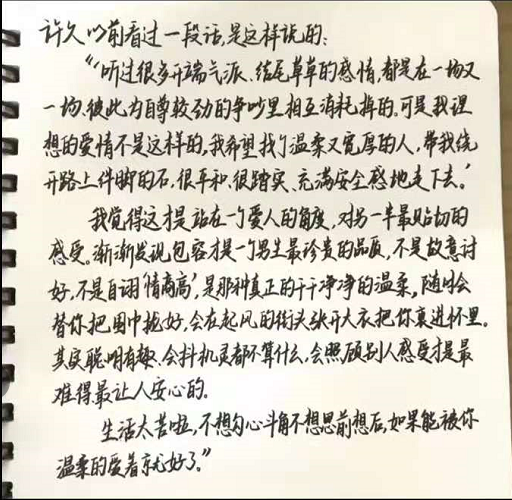 许久以前看过一段话,是这样说的:
“听过很多开端气派、结尾草草的感情,都是在一场又
一场、彼此为自尊较劲的争吵里相互消耗掉的。可是我理
想的爱情不是这样的,我希望找个温柔又宽厚的人,带我绕
开路上绊脚的石,很平和、很踏实、充满安全感地走下去。”
我觉得这才是站在一个爱人的角度,对另一半最贴切的
感受。渐渐发现包容才是一个男生最珍贵的品质,不是故意讨
好,不是自诩‘情商高’,是那种真正的干干净净的温柔,随时会
替你把围巾拢好,会在起风的街头张开大衣把你裹进怀里。
其实聪明有趣、会抖机灵都不算什么,会照顾别人感受才是最
难得最让人安心的。
生活太苦啦,不想勾心斗角不想思前想后,如果能被你
温柔的爱着就好了。”